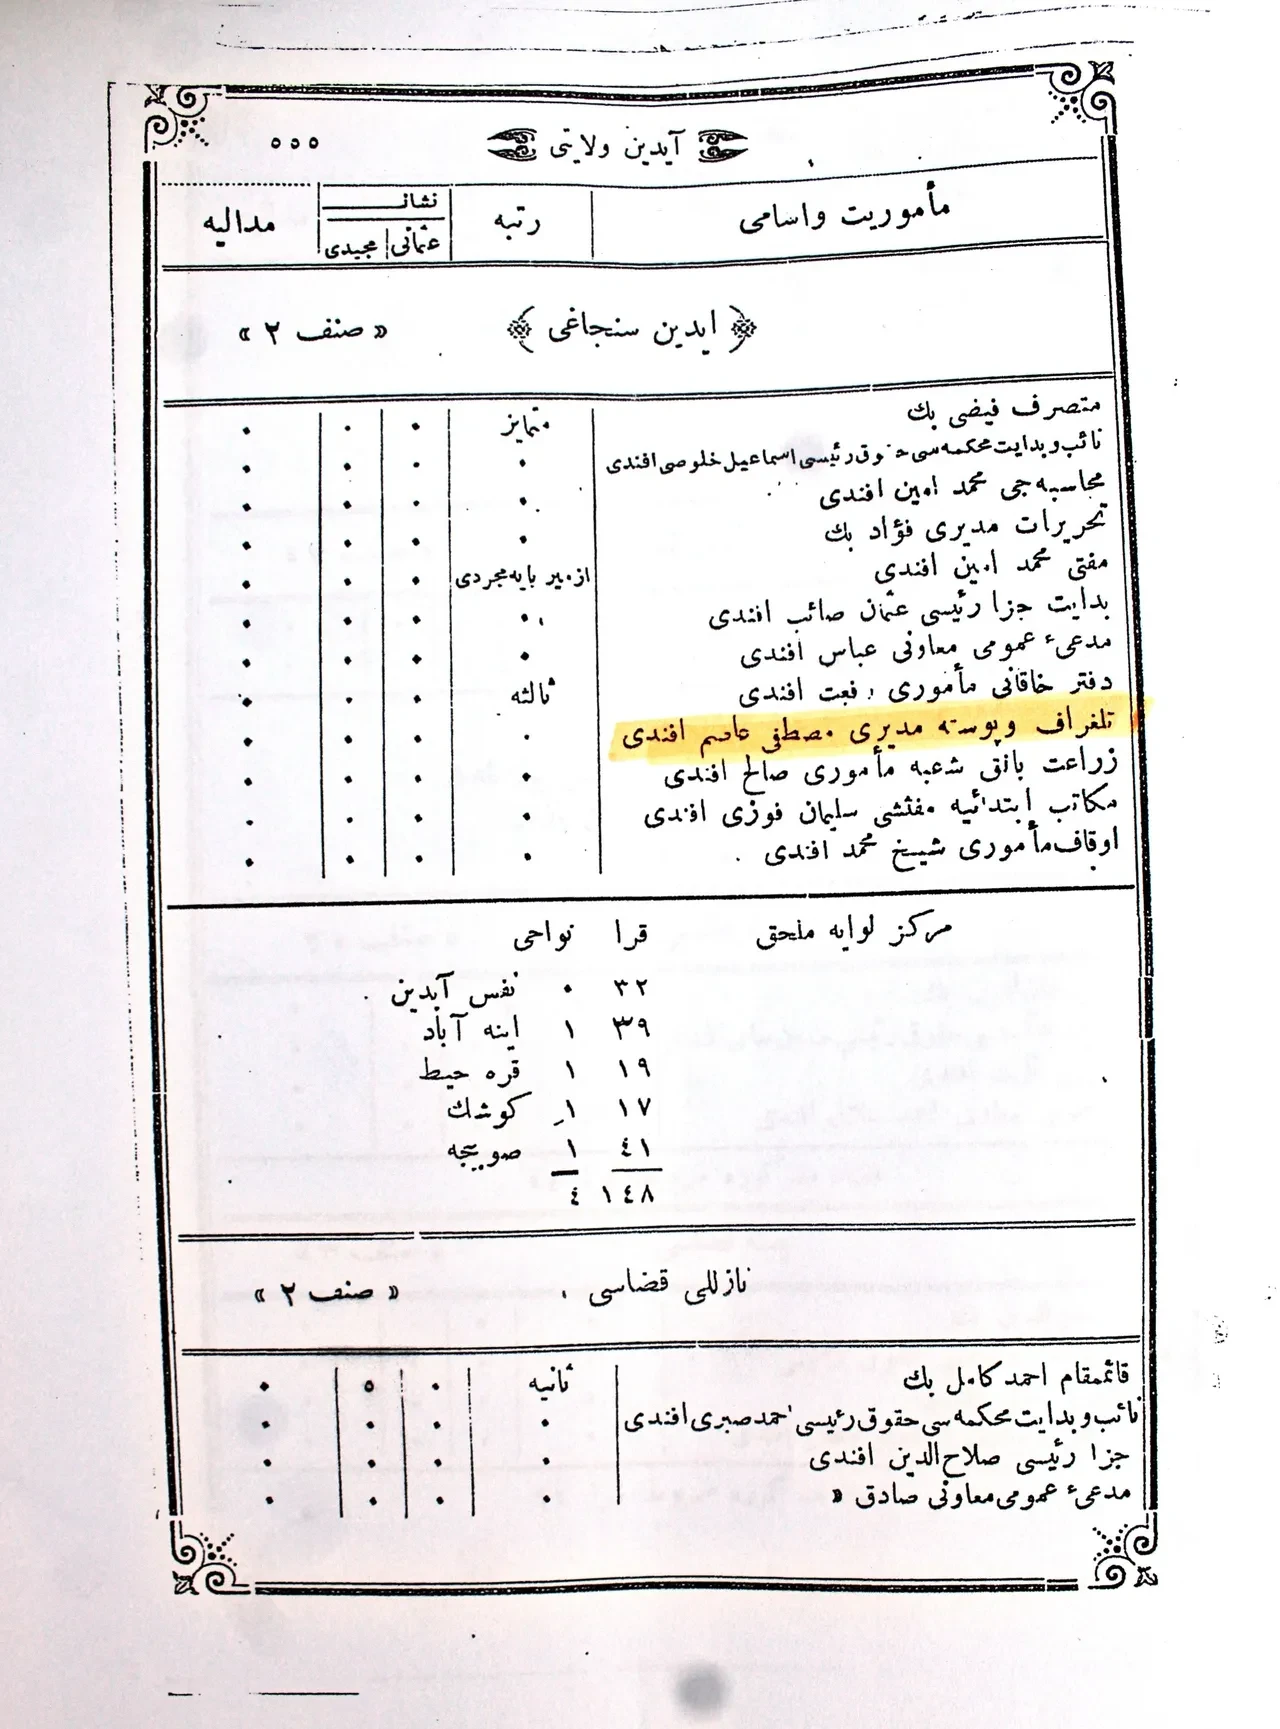 آیدین ولایتی ٥٥٥
مأموریت واسامی رتبه نشان مدالیه
عثمانی مجیدی
﴿ ایدین سنجاغی ﴾ « صنف ٢ »
متصرف فیضی بك متمایز
نائب و بدایت محكمه سی حقوق رئیسی اسماعیل خلوصی افندی
محاسبه جی محمد امین افندی
تحریرات مدیری فؤاد بك
مفتی محمد امین افندی ازمیر پایه مجردی
بدایت جزا رئیسی عثمان صائب افندی
مدعیء عمومی معاونی عباس افندی
دفتر خاقانی مأموری رفعت افندی ثالثه
تلغراف وپوسته مدیری مصطفی عاصم افندی
زراعت بانق شعبه مأموری صالح افندی
مكاتب ابتدائیه مفتشی سلیمان فوزی افندی
اوقاف مأموری شیخ محمد افندی
مركز لوایه ملحق قرا نواحی
٣٢ ٠ نفس آیدین
٣٩ ١ اینه آباد
١٩ ١ قره حیط
١٧ ١ كوشك
٤١ ١ صوبیجه
١٤٨ ٤
نازللی قضاسی « صنف ٢ »
قائممقام احمد كامل بك ثانیه ٥
نائب و بدایت محكمه سی حقوق رئیسی احمد صبری افندی
جزا رئیسی صلاح الدین افندی
مدعیء عمومی معاونی صادق »